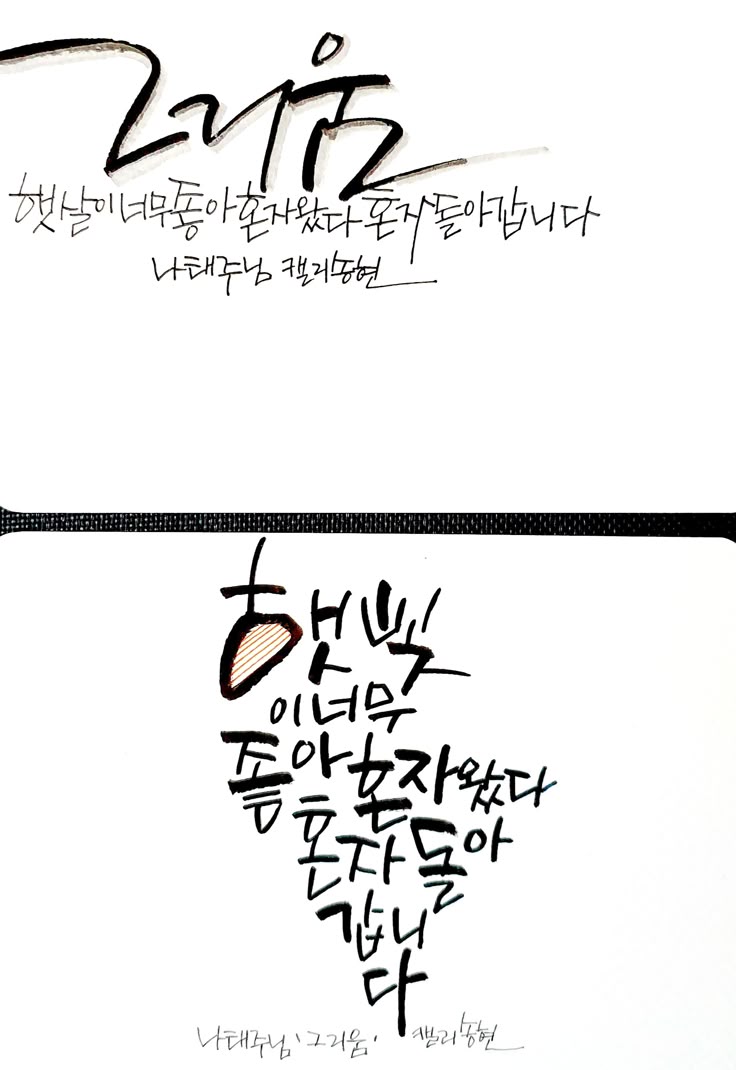 그리움
햇살이 너무 좋아 혼자 왔다 혼자 돌아갑니다
나태주님 캘리송현
햇빛
이 너무
좋아 혼자 왔다
혼자 돌아
갑니
다
나태주님 '그리움' 캘리송현